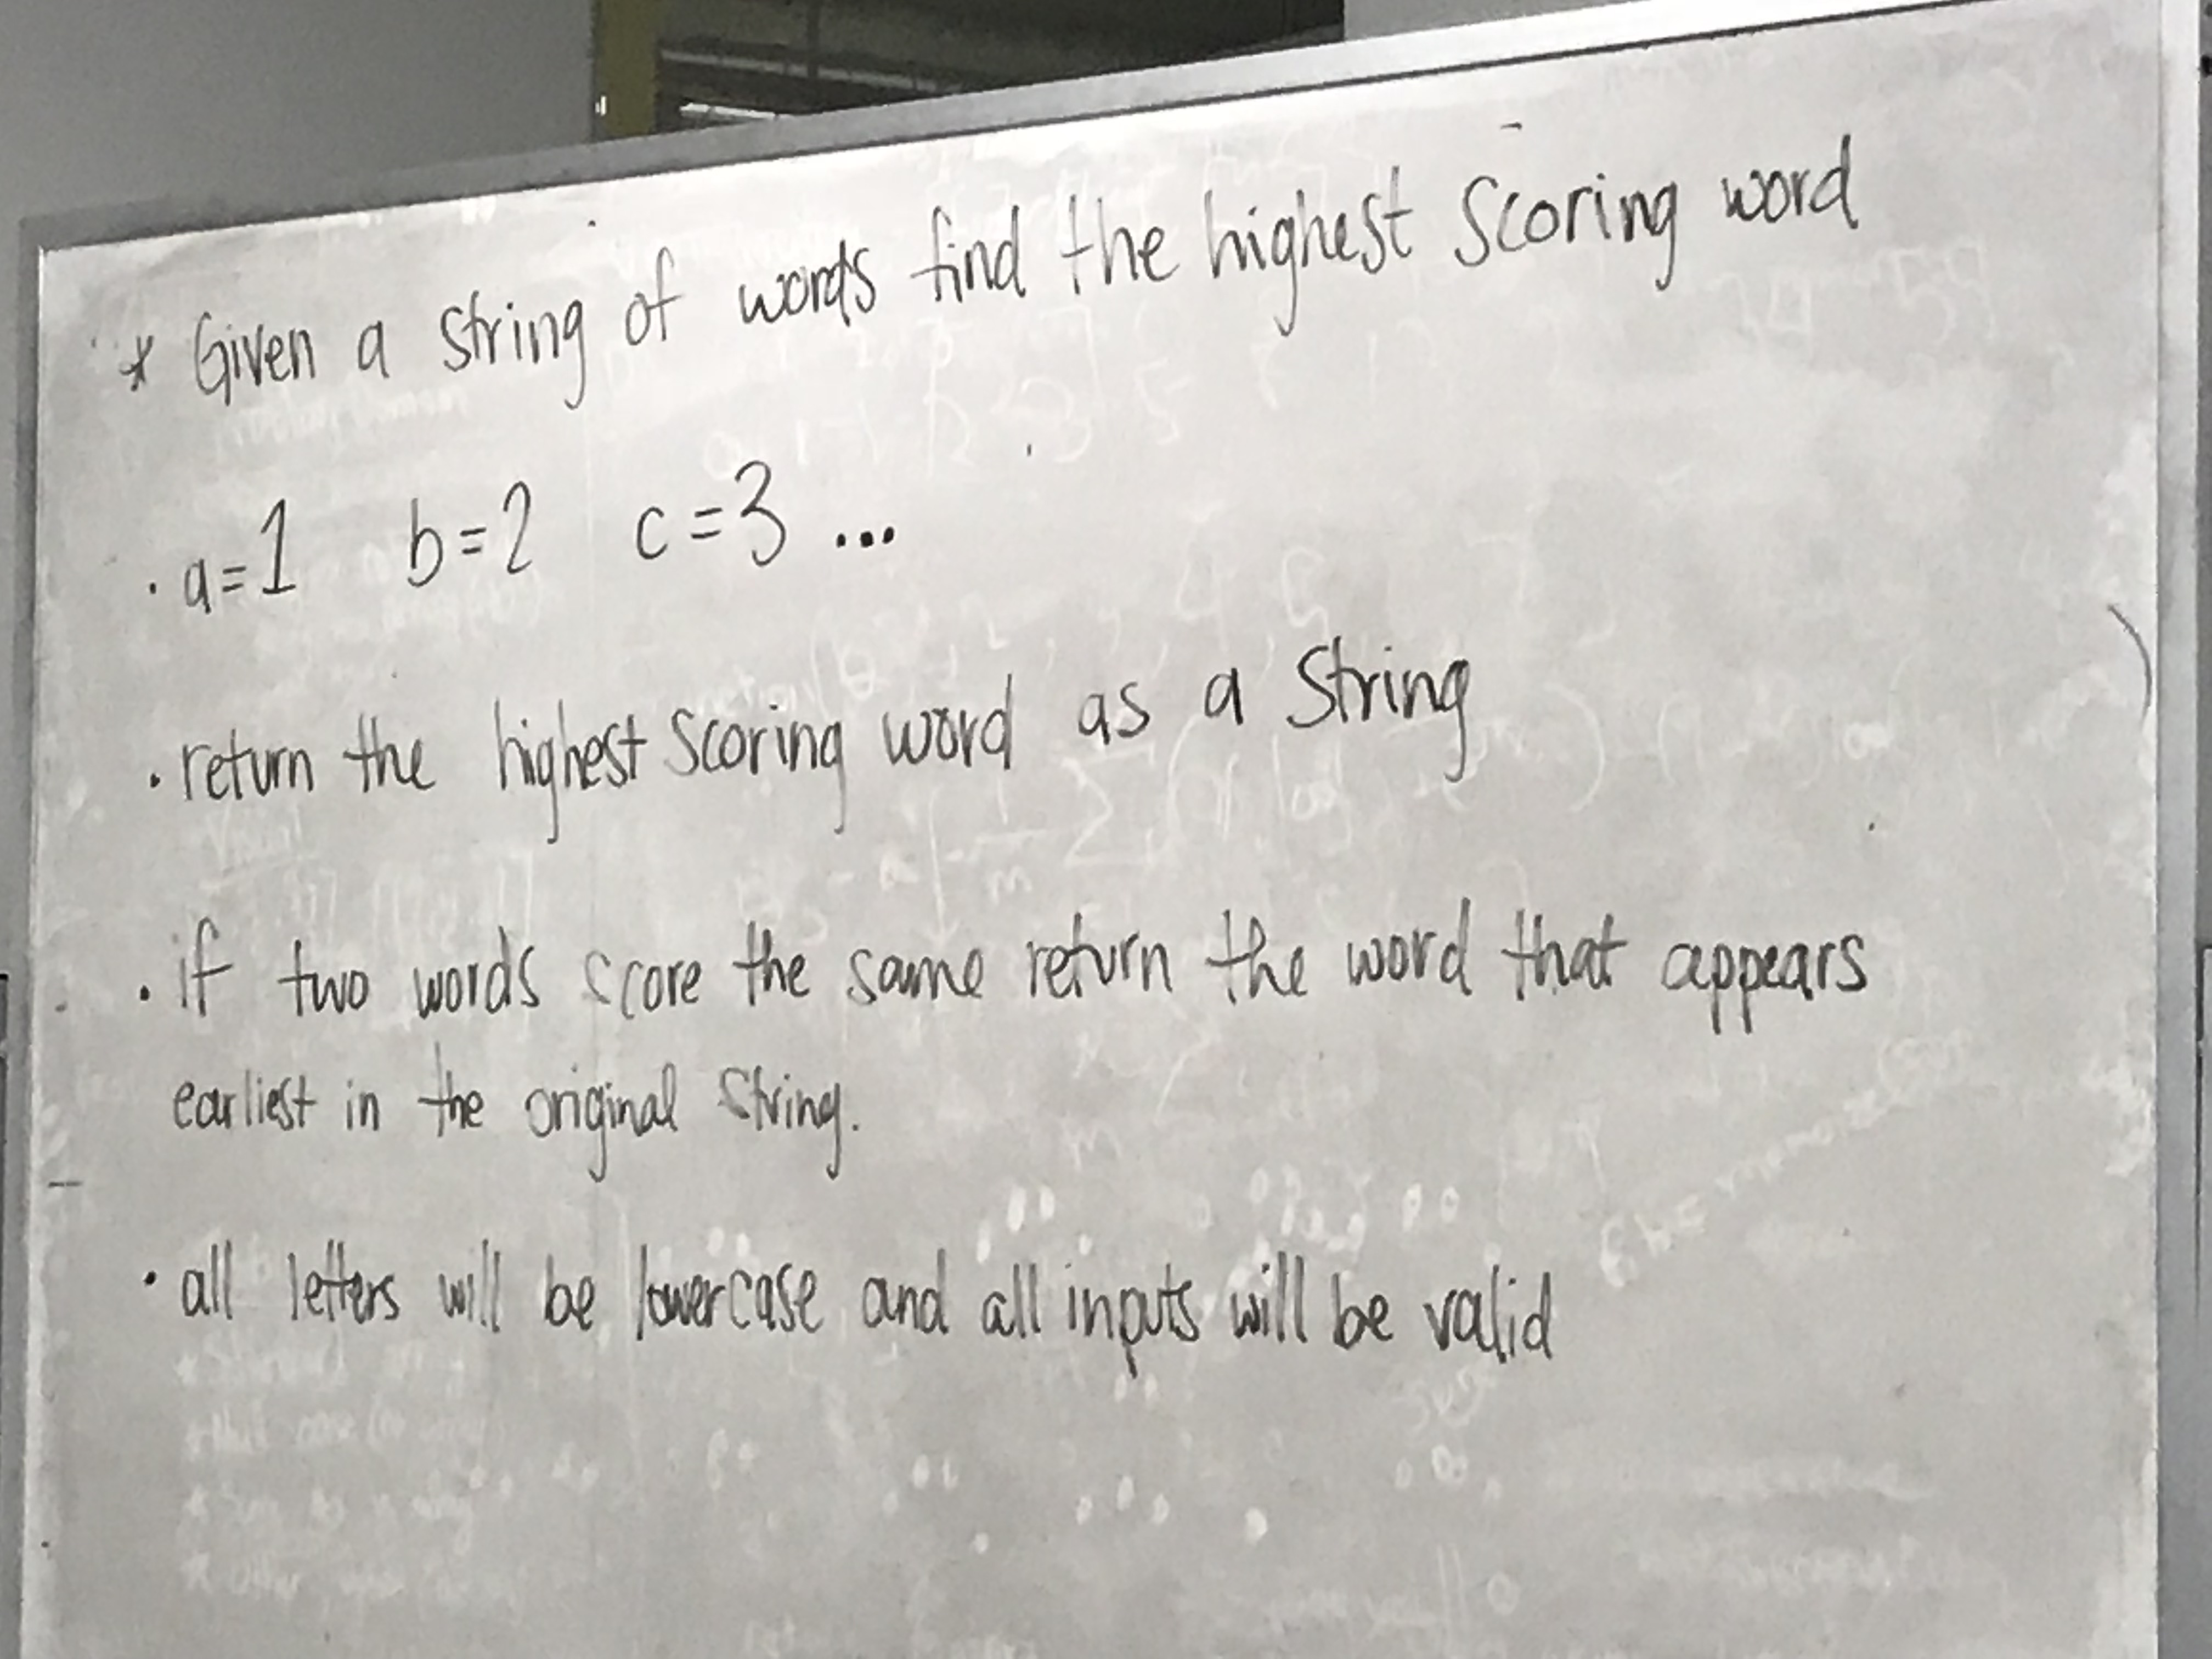 * Given a string of words find the highest scoring word
· a=1 b=2 c=3 ...
· return the highest scoring word as a string
· if two words score the same return the word that appears
earliest in the original string.
· all letters will be lowercase and all inputs will be valid